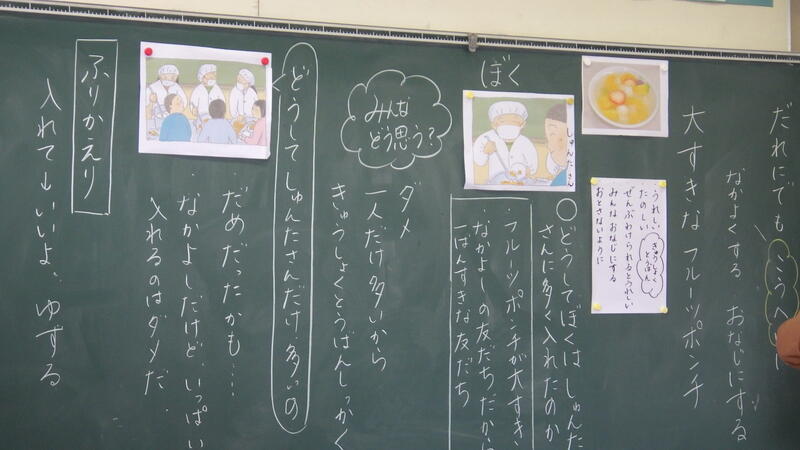 だれにでも こうへいに
なかよくする おなじにする
大すきな フルーツポンチ
うれしい
たのしい
きゅうしょく
とうばん
ぜんぶわけられるとうれしい
みんなおなじにする
おとさないように
ぼく
しゅんたさん
○どうしてぼくは しゅんた
さんに多く入れたのか
・フルーツポンチが大すき
・なかよしの友だちだから
一ばんすきな友だち
みんな
どう思う?
ダメ
一人だけ多いから
きゅうしょくとうばんしっかく
どうしてしゅんたさんだけ多いの
だめだったかも…
・なかよしだけど、いっぱい
入れるのはダメだ
ふりかえり
入れて→いいよ、ゆずる